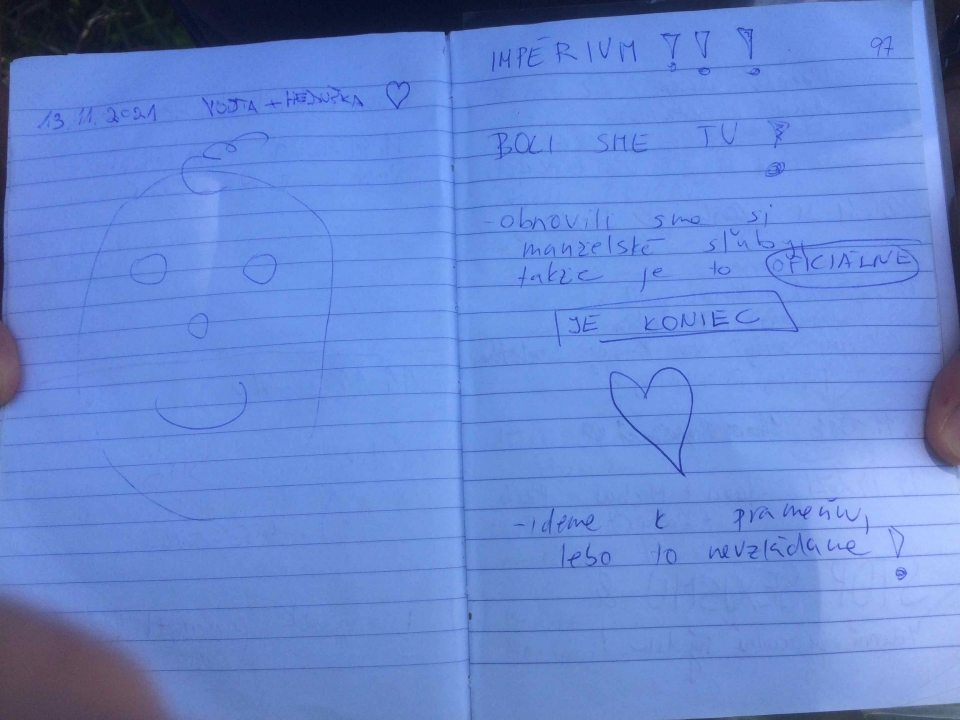 13. 11. 2021 VOJTA + HEDUŠKA ♡
IMPÉRIUM !!!
97
BOLI SME TU !
- obnovili sme si
manželské sľuby,
takže je to OFICIÁLNE
JE KONIEC
- ideme k prameňu,
lebo to nevzládame !